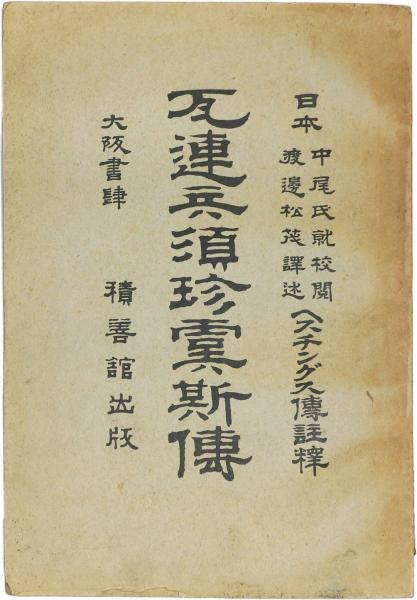 日本 中尾氏就校閲
渡邊松茂譯述
ヘスチングス傳註釋
瓦連兵須珍虞斯傳
大阪書肆 積善館出版